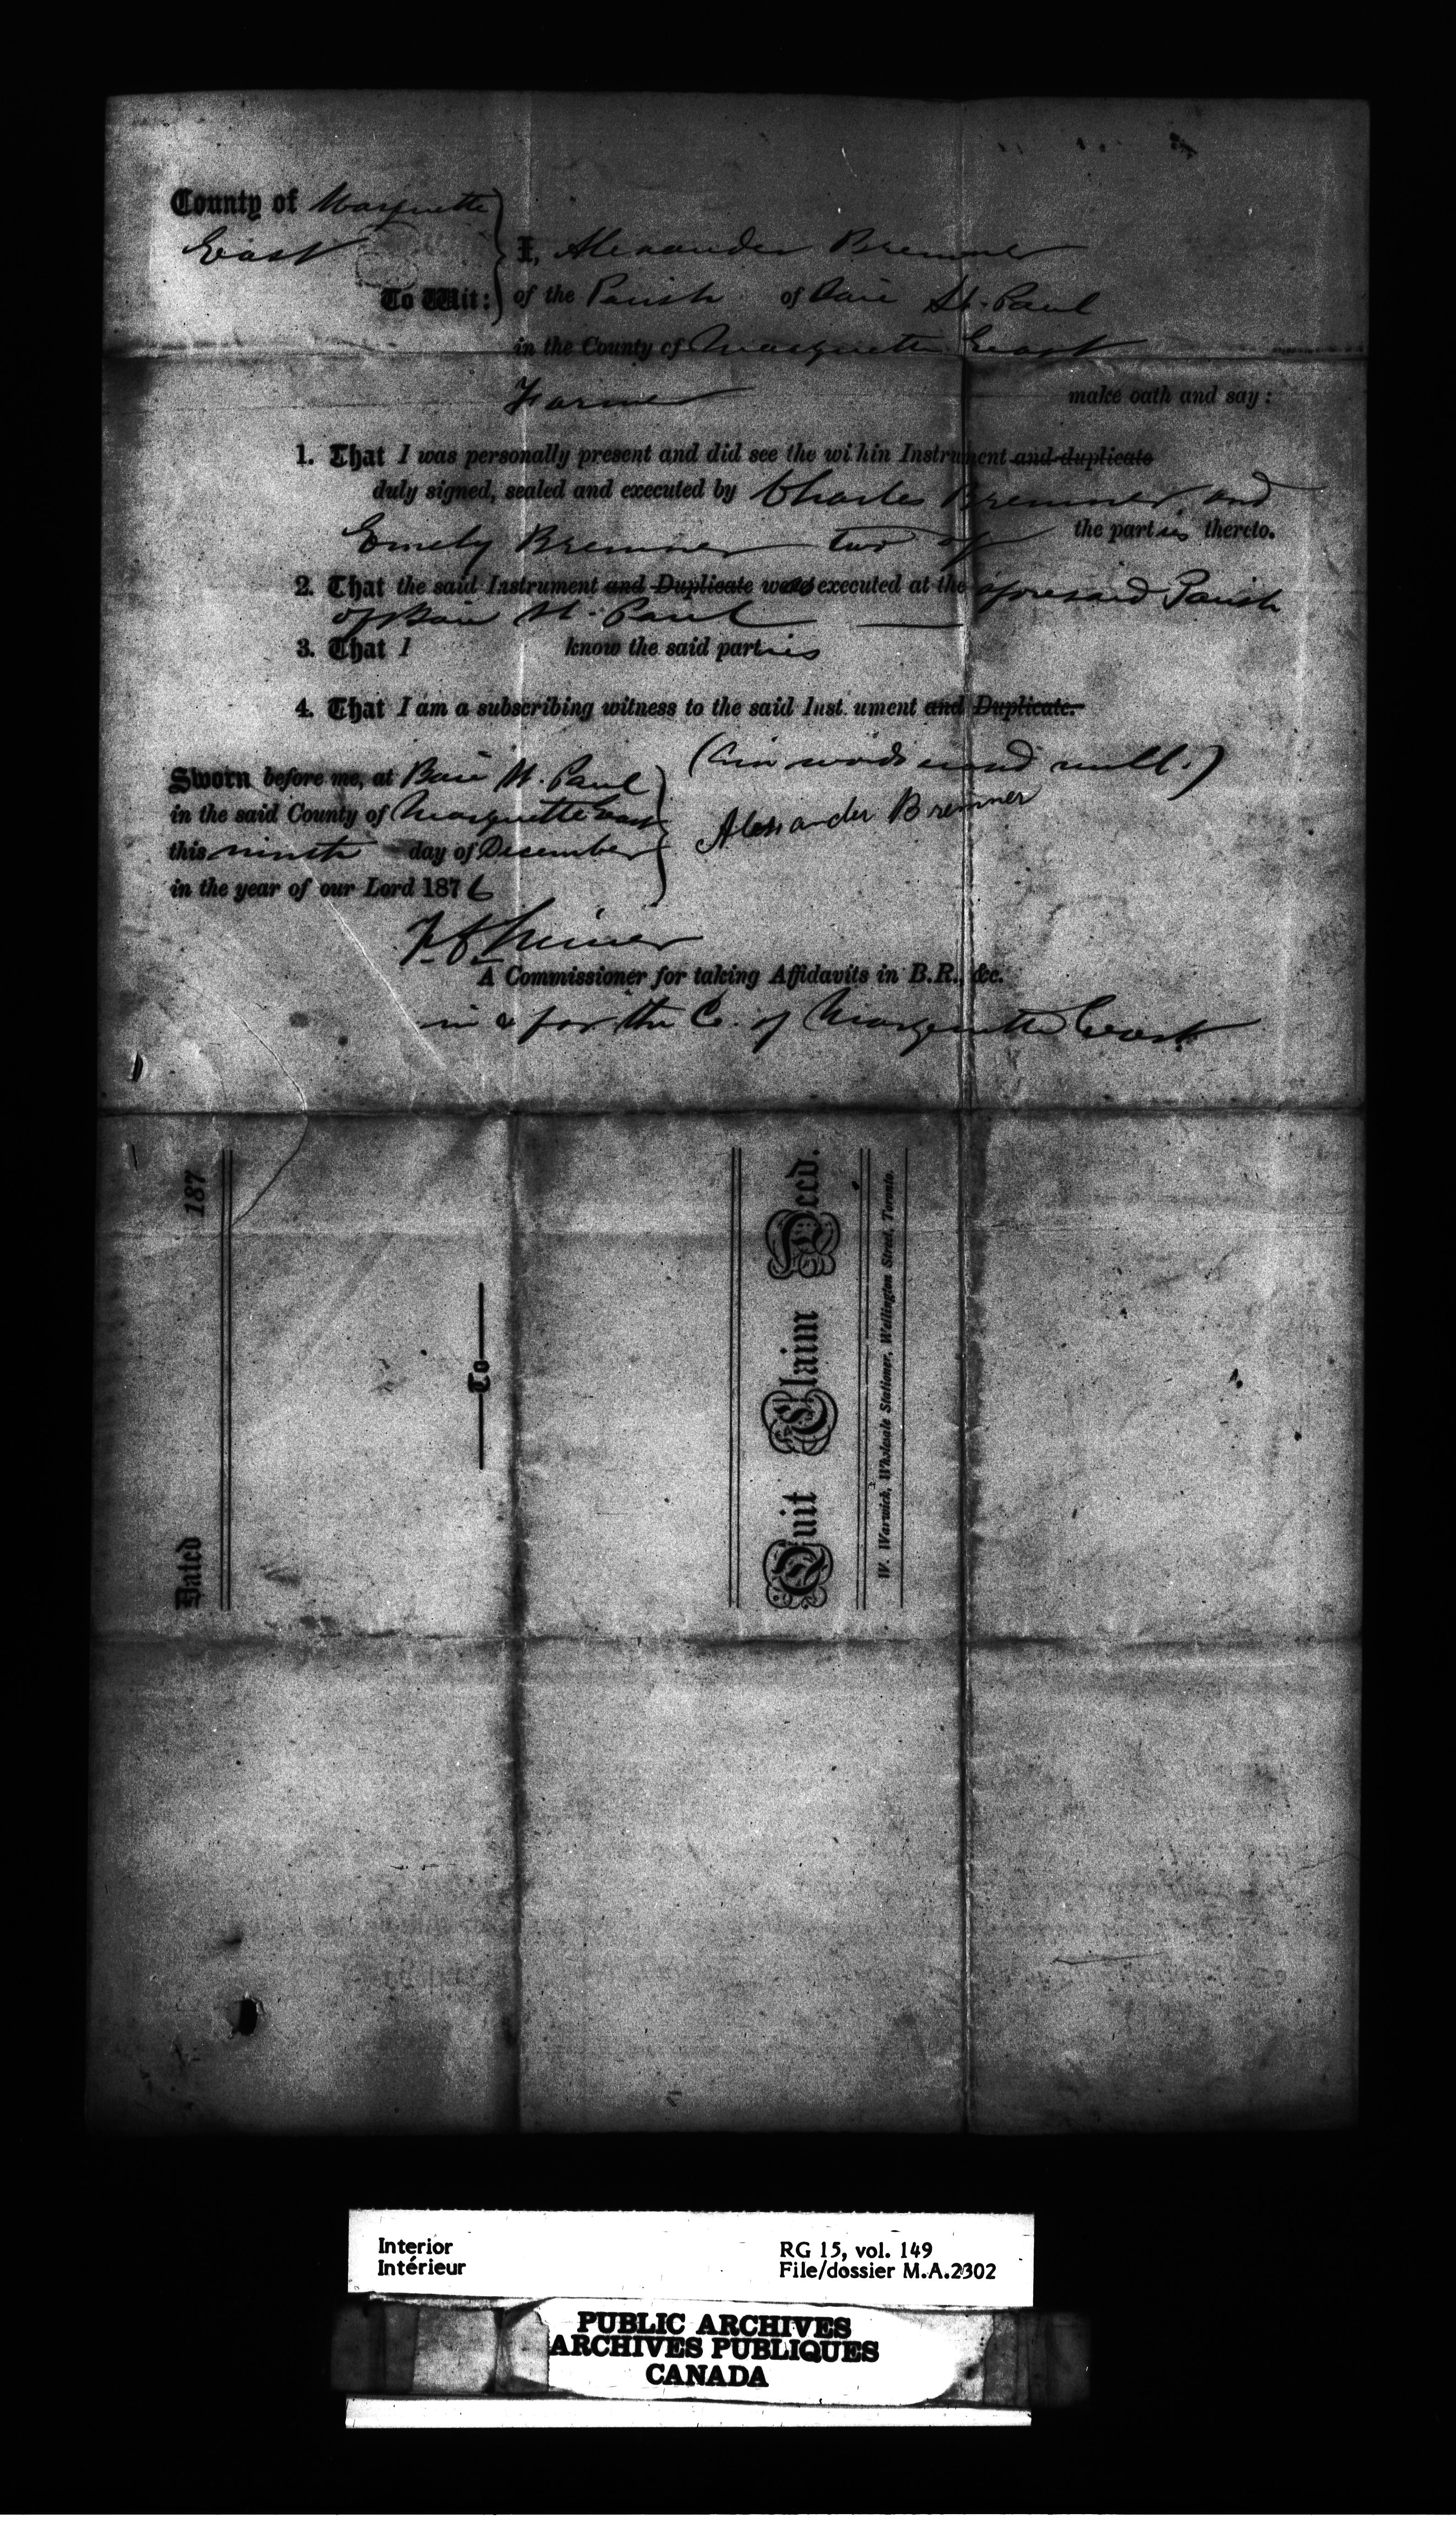 County of Marquette
East
To Wit:
I, Alexander Bremner
of the Parish of Baie St. Paul
in the County of Marquette East
Farmer make oath and say:
1. That I was personally present and did see the within Instrument and duplicate
duly signed, sealed and executed by Charles Bremner and
Emely Bremner two of the parties thereto.
2. That the said Instrument and Duplicate was executed at the aforesaid Parish
of Baie St. Paul
3. That I know the said parties
4. That I am a subscribing witness to the said Instrument and Duplicate.
Sworn before me, at Baie St. Paul
in the said County of Marquette East
this ninth day of Desember
in the year of our Lord 1876
words null.)
Alexander Bremner
A Commissioner for taking Affidavits in B.R., &c.
in & for the Co. of Marquette East.
Dated 187
To
Quit Claim Deed.
W. Warwick, Wholesale Stationer, Wellington Street, Toronto.
Interior
Intérieur
RG 15, vol. 149
File/dossier M.A.2302
PUBLIC ARCHIVES
ARCHIVES PUBLIQUES
CANADA